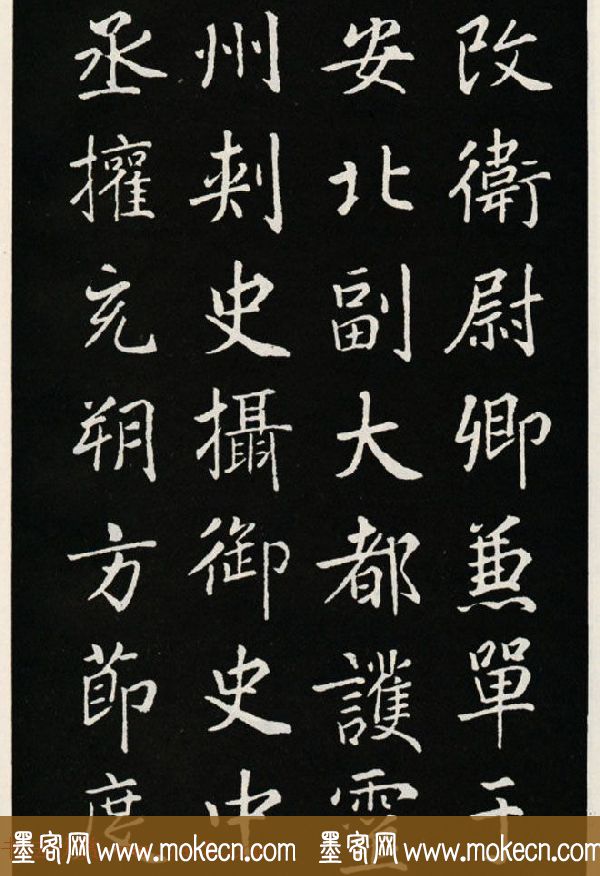 改衛尉卿兼單于
安北副大都護靈
州刺史攝御史中
丞權充朔方節度
墨客网www.mokecn.com 墨客网www.mokecn.com